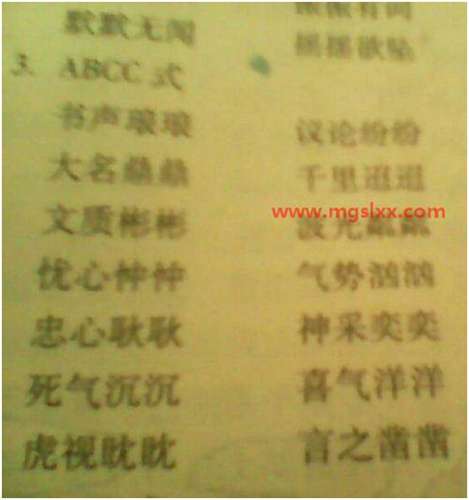 默默无闻 摇摇欲坠
3. ABCC 式
书声琅琅 议论纷纷
大名鼎鼎 千里迢迢
www.mgslxx.com
文质彬彬 波光粼粼
忧心忡忡 气势汹汹
忠心耿耿 神采奕奕
死气沉沉 喜气洋洋
虎视眈眈 言之凿凿